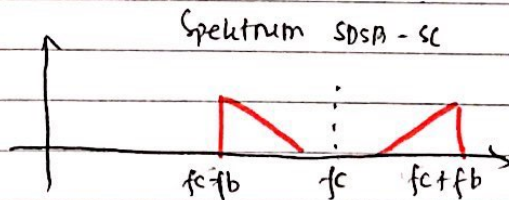 Spektrum SDSB - SC
fc-fb fc fc+fb